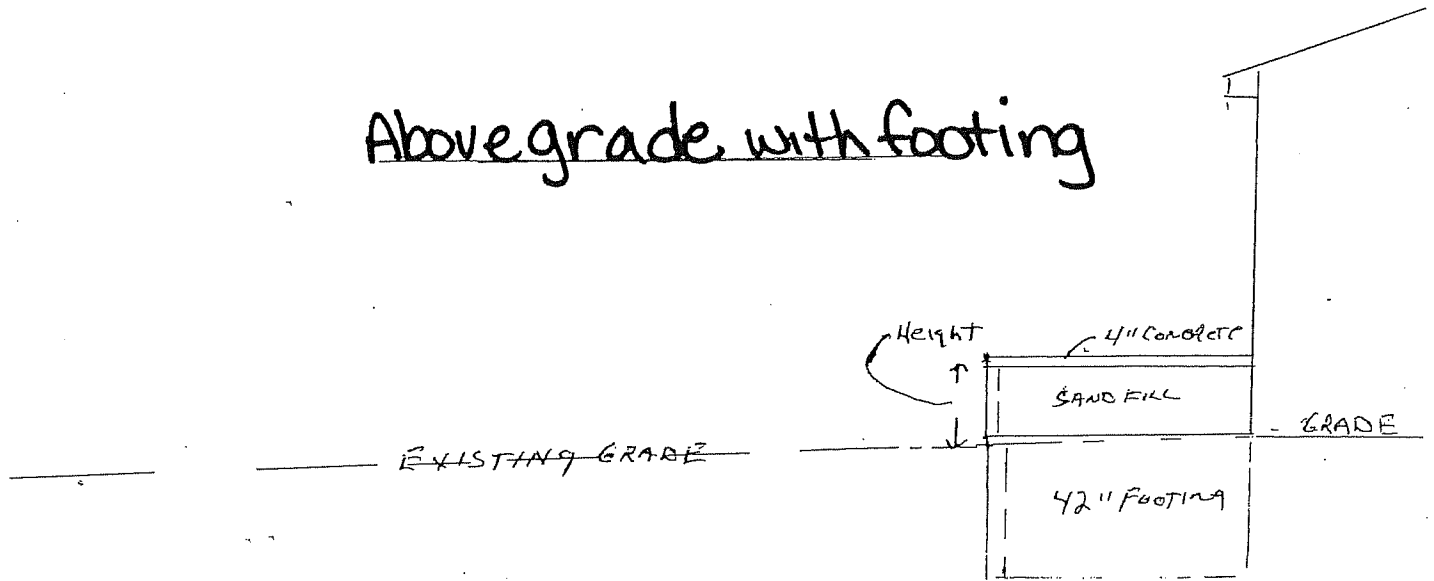 Above grade with footing
Height
4" Concrete
SAND FILL
GRADE
EXISTING GRADE
42" FOOTING